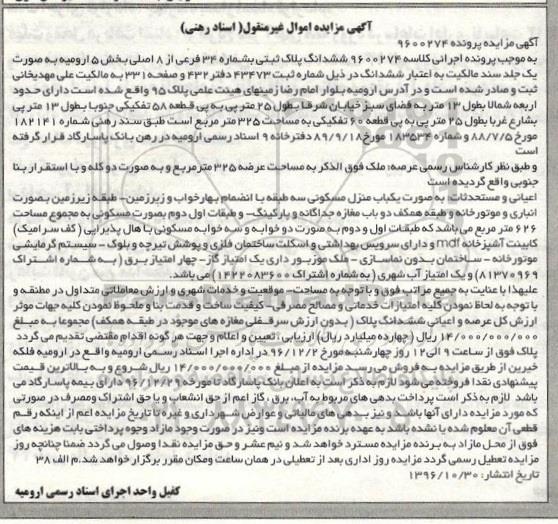 آگهی مزایده اموال غیرمنقول( اسناد رهنی)
آگهی مزایده پرونده ۹۶۰۰۲۷۴
به موجب پرونده اجرائی کلاسه ۹۶۰۰۲۷۴ ششدانگ پلاک ثبتی بشماره ۳۴ فرعی از ۸ اصلی بخش ۵ ارومیه به صورت
یک جلد سند مالکیت به اعتبار ششدانگ در ذیل شماره ثبت ۴۳۴۷۳ دفتر ۴۳۲ و صفحه ۳۳۱ به مالکیت علی مهدیخانی
ثبت و صادر شده است و در آدرس ارومیه بلوار امام رضا زمینهای هیئت علمی پلاک ۹۵ واقع شده است دارای حدود
اربعه شمالا بطول ۱۳ متر به فضای سبز خیابان شرقا بطول ۲۵ متر پی به پی قطعه ۵۸ تفکیکی جنوبا بطول ۱۳ متر پی
بشارع غربا بطول ۲۵ متر پی به پی قطعه ۶۰ تفکیکی به مساحت ۳۲۵ متر مربع است طبق سند رهنی شماره ۱۸۲۱۴۱
مورخ ۸۸/۷/۵ و شماره ۱۸۳۵۳۴ مورخ ۸۹/۹/۱۸ دفترخانه ۹ اسناد رسمی ارومیه در رهن بانک پاسارگاد قرار گرفته
است
و طبق نظر کارشناس رسمی عرصه: ملک فوق الذکر به مساحت عرصه ۳۲۵ مترمربع و به صورت دو کله و با استقرار بنا
جنوبی واقع گردیده است
اعیانی و مستحدثات: به صورت یکباب منزل مسکونی سه طبقه با انضمام بهارخواب و زیرزمین- طبقه زیرزمین بصورت
انباری و موتورخانه و طبقه همکف دو باب مغازه جداگانه و پارکینگ- و طبقات اول دوم بصورت مسکونی به مجموع مساحت
۶۲۶ متر مربع می باشد که طبقات اول و دوم به صورت دو خوابه و سه خوابه مسکونی با هال پذیرایی ( کف سرامیک)
کابینت آشپزخانه mdf و دارای سرویس بهداشتی و اسکلت ساختمان فلزی و پوشش تیرچه و بلوک - سیستم گرمایشی
موتورخانه - ساختمان بدون نماسازی - ملک مزبور داری یک امتیاز گاز- چهار امتیاز برق ( به شماره اشتراک
۸۱۳۷۰۹۶۹) و یک امتیاز آب شهری ( به شماره اشتراک ۱۴۲۲۰۸۳۶۰۰) می باشد.
علیهذا با عنایت به جمیع مراتب فوق و با توجه به مساحت- موقعیت و خدمات شهری و ارزش معاملاتی متداول در منطقه و
با توجه به لحاظ نمودن کلیه امتیازات خدماتی و مصالح مصرفی- کیفیت ساخت و قدمت بنا و ملحوظ نمودن کلیه جهات موثر
ارزش کل عرصه و اعیانی ششدانگ پلاک ( بدون ارزش سرقفلی مغازه های موجود در طبقه همکف) مجموعا به مبلغ
۱۴/۰۰۰/۰۰۰/۰۰۰ ریال (چهارده میلیارد ریال) ارزیابی ، تعیین و اعلام و جهت هر گونه اقدام مقتضی تقدیم می گردد
پلاک فوق از ساعت ۹ الی ۱۲ روز چهارشنبه مورخ ۹۶/۱۲/۲ در اداره اجرا اسناد رسمی ارومیه واقع در ارومیه فلکه
خیرین از طریق مزایده به فروش می رسد مزایده از مبلغ ۱۴/۰۰۰/۰۰۰/۰۰۰ ریال شروع و به بالاترین قیمت
پیشنهادی نقدا فروخته می شود لازم به ذکر است به اعلان بانک پاسارگاد تا مورخه ۹۶/۱۲/۲۹ دارای بیمه پاسارگاد می
باشد لازم به ذکر است پرداخت بدهی های مربوط به آب، برق ، گاز اعم از حق انشعاب و یا حق اشتراک و مصرف در صورتی
که مورد مزایده دارای آنها باشد و نیز بدهی های مالیاتی و عوارض شهرداری و غیره تا تاریخ مزایده اعم از اینکه رقم
قطعی آن معلوم شده یا نشده باشد به عهده برنده مزایده است ونیز در صورت وجود مازاد وجوه پرداختی بابت هزینه های
فوق از محل مازاد به برنده مزایده مسترد خواهد شد و نیم عشر و حق مزایده نقدا وصول می گردد ضمنا چنانچه روز
مزایده تعطیل رسمی گردد مزایده روز اداری بعد از تعطیلی در همان ساعت ومکان مقرر برگزار خواهد شد.م الف ۳۸
تاریخ انتشار: ۱۳۹۶/۱۰/۳۰
کفیل واحد اجرای اسناد رسمی ارومیه